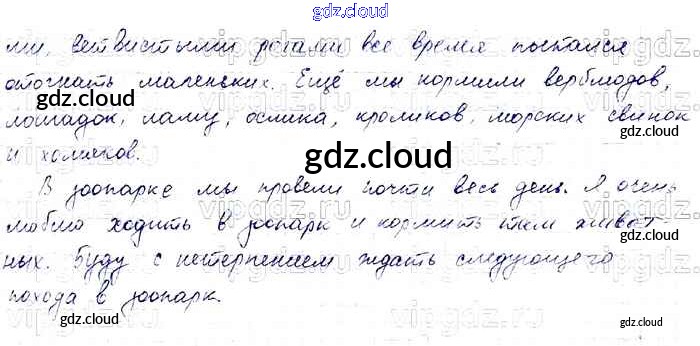 gdz.cloud
ми, ветвистыми рогами все время пытался
отогнать маленьких. Ещё мы кормили верблюдов,
gdz.cloud gdz.cloud
лошадок, ламу, ослика, кроликов, морских свинок
и хомяков. gdz.cloud
В зоопарке мы провели почти весь день. Я очень
люблю ходить в зоопарк и кормить там живот-
ных. Буду с нетерпением ждать следующего
похода в зоопарк.
gdz.cloud gdz.cloud